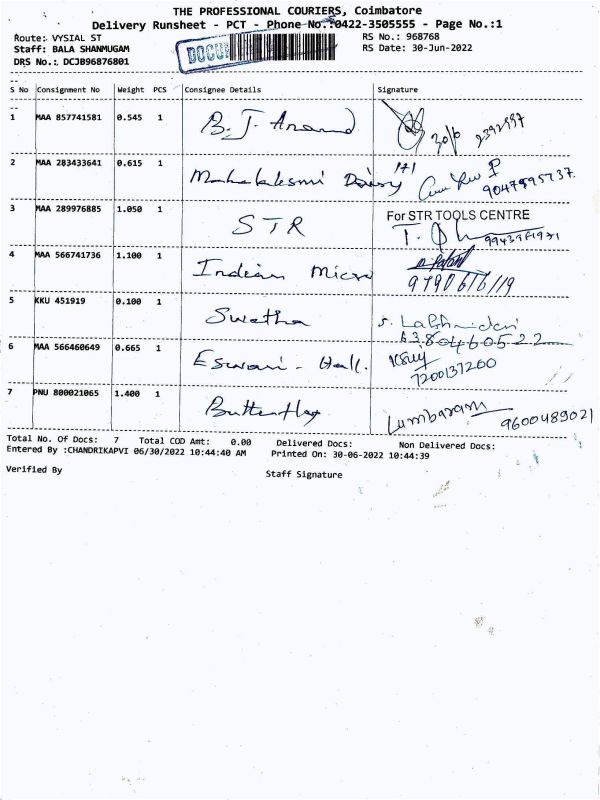 THE PROFESSIONAL COURIERS, Coimbatore
Delivery Runsheet - PCT - Phone No.:0422-3505555 - Page No.:1
Route: VYSIAL ST RS No.: 968768
Staff: BALA SHANMUGAM DOCU RS Date: 30-Jun-2022
DRS No.: DCJB96876801
S No Consignment No Weight PCS Consignee Details Signature
1 MAA 857741581 0.545 1 B. J. Anand 30/6 2392997
2 MAA 283433641 0.615 1 Mahalakshmi Dairy
3 MAA 289976885 1.050 1 STR For STR TOOLS CENTRE
4 MAA 566741736 1.100 1 Indian Micro 9790616119
5 KKU 451919 0.100 1 Swetha 6380460522
6 MAA 566460649 0.665 1 Eswari - Hall. 7200137200
7 PNU 800021065 1.400 1 Butterflay 9600489021
Total No. Of Docs: 7 Total COD Amt: 0.00 Delivered Docs: Non Delivered Docs:
Entered By :CHANDRIKAPVI 06/30/2022 10:44:40 AM Printed On: 30-06-2022 10:44:39
Verified By Staff Signature